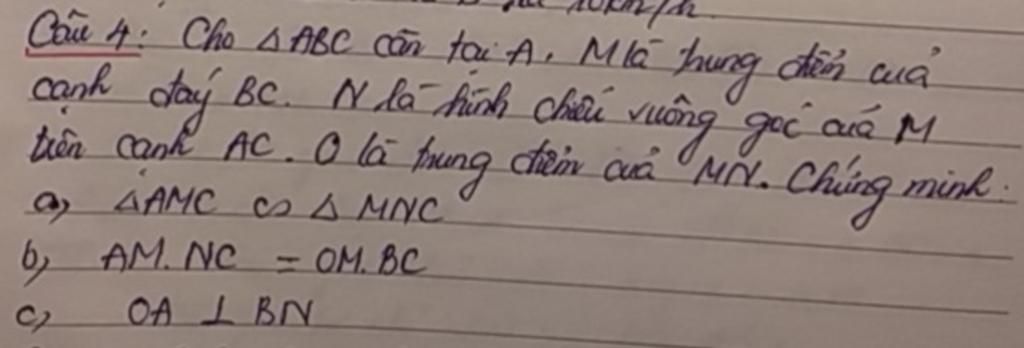 10km/h
Câu 4: Cho △ABC cân tại A. M là trung điểm của
cạnh đáy BC. N là hình chiếu vuông góc của M
trên cạnh AC. O là trung điểm của MN. Chứng minh:
a, △AMC ∽ △MNC
b, AM.NC = OM.BC
c, OA ⊥ BN